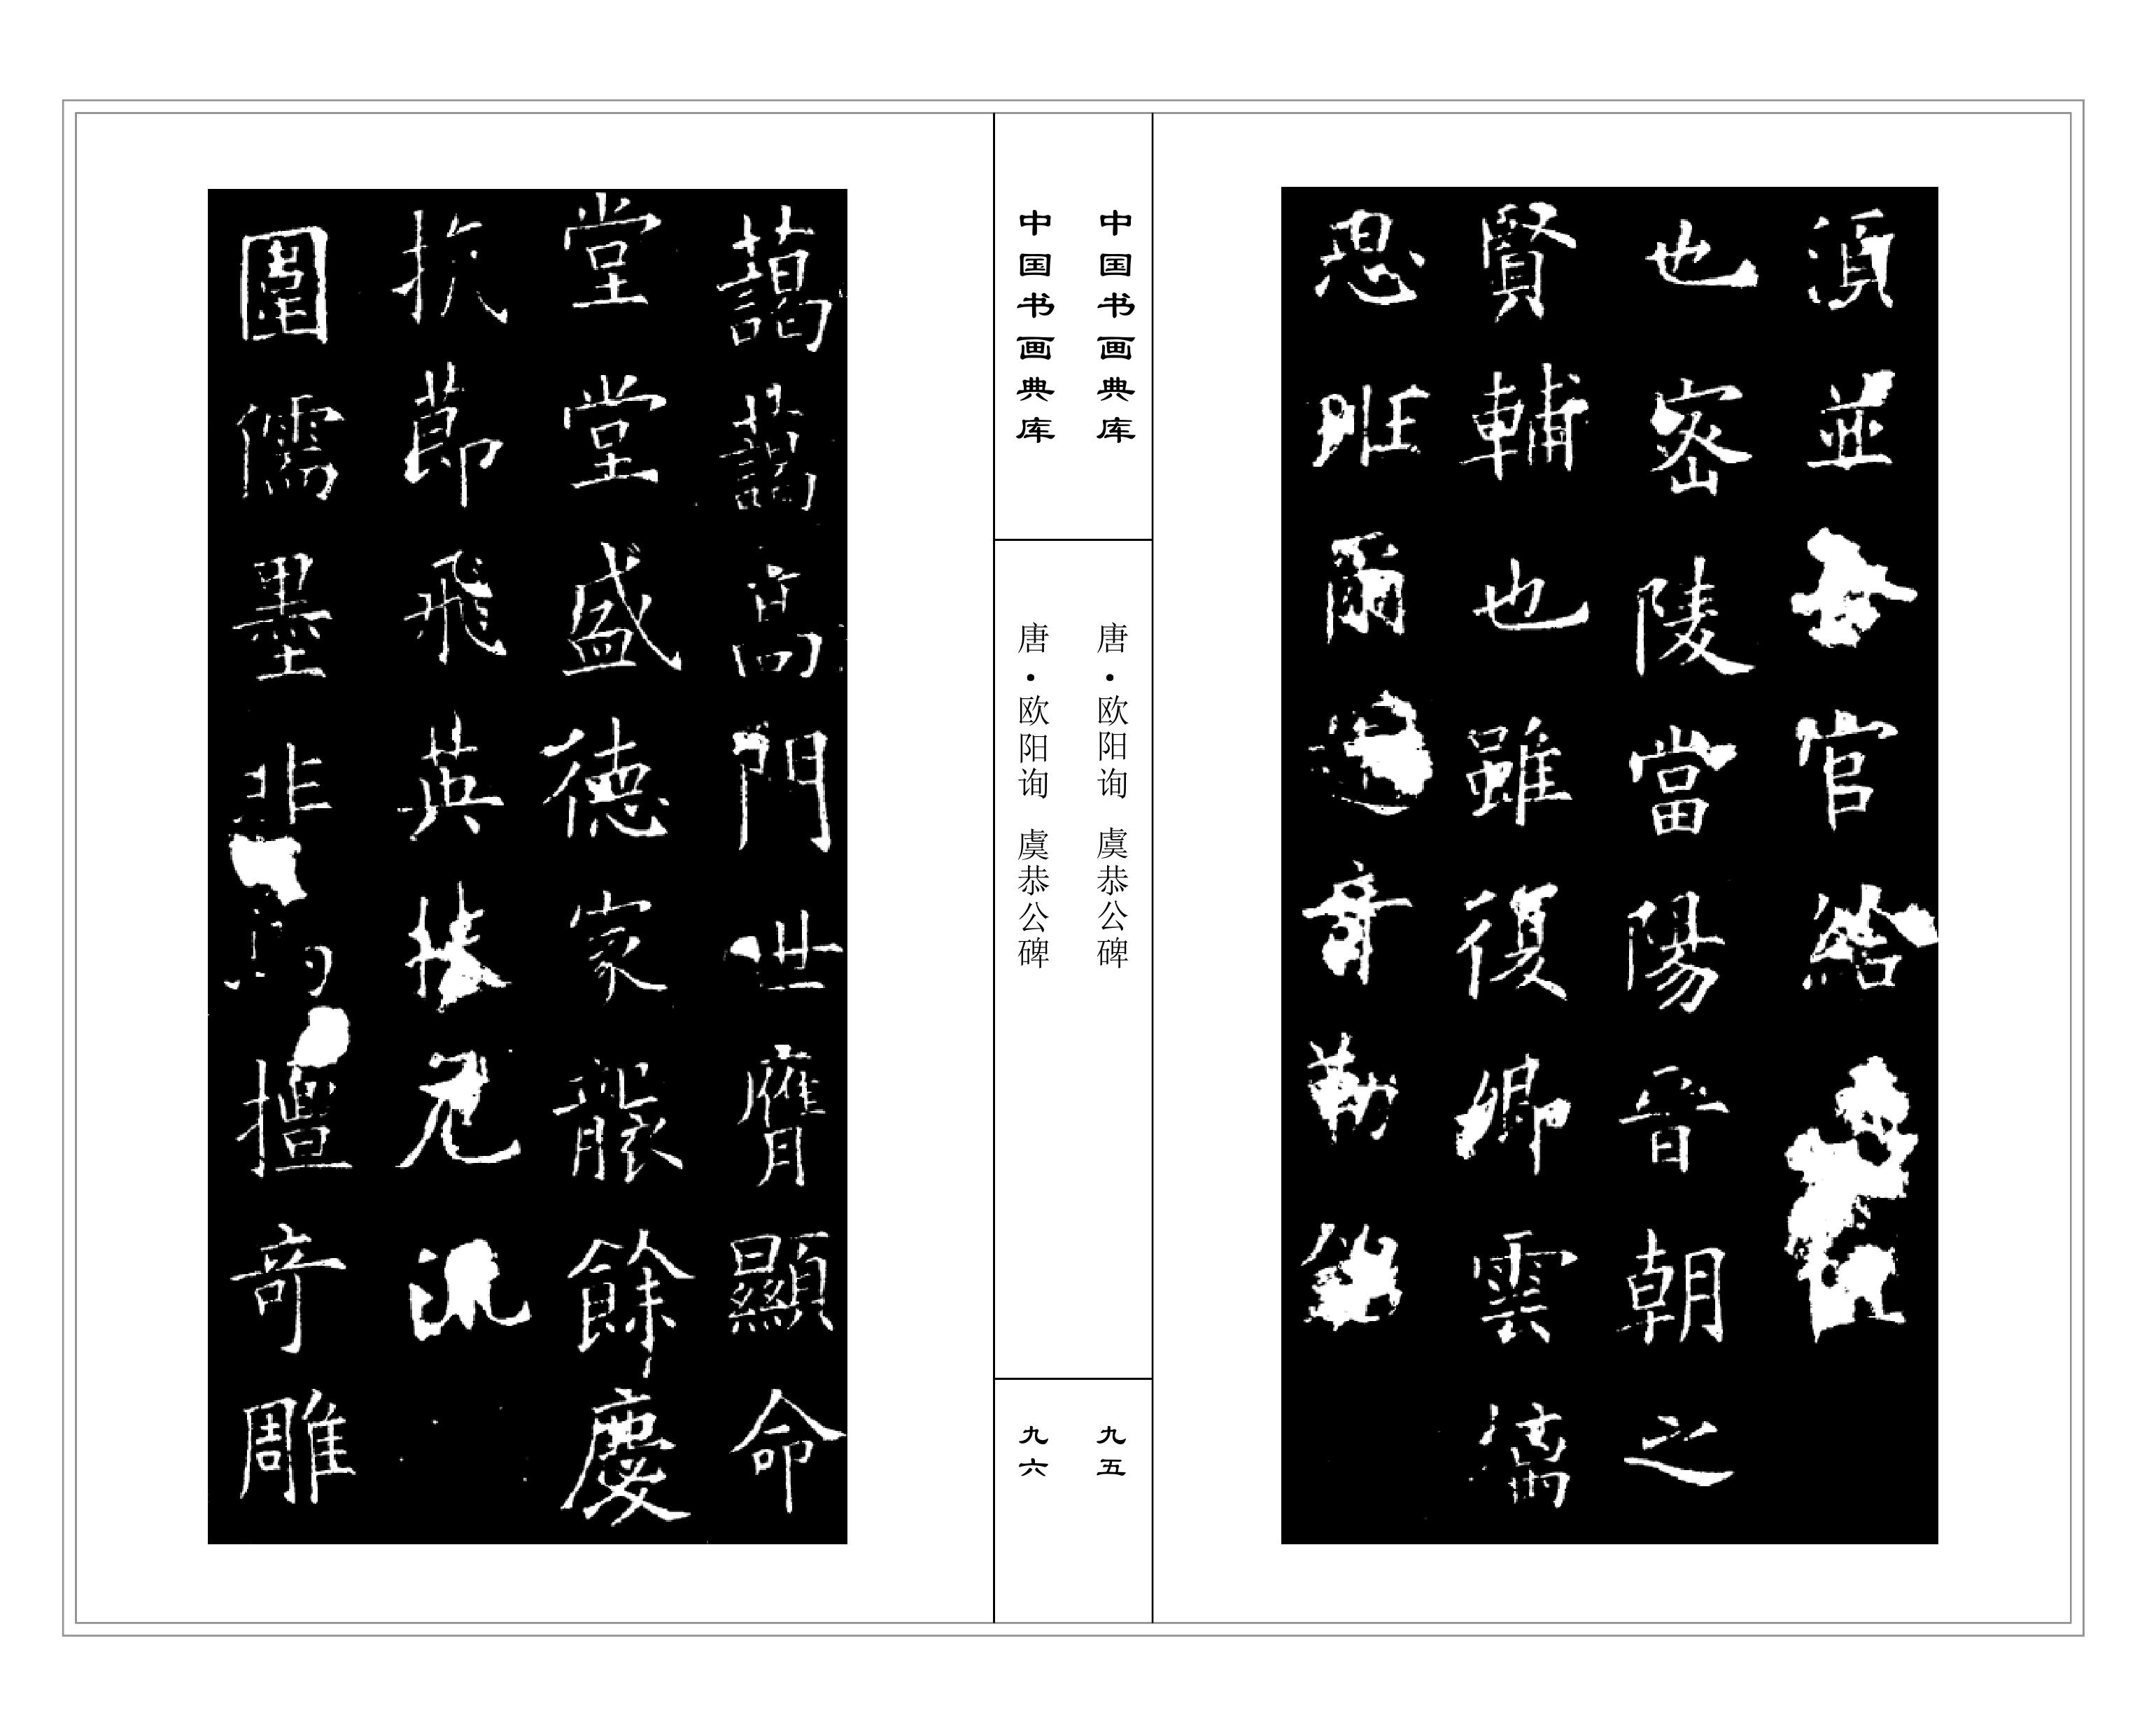 須並官給
也密陵當陽晉朝之
賢輔也雖復卿雲儒
思班爾音勒
中国书画典库
唐·欧阳询 虞恭公碑
九五
中国书画典库
唐·欧阳询 虞恭公碑
九六
藹藹高門世膺顯命
堂堂盛德家襲餘慶
抗節飛英
圍儒墨非擅奇雕